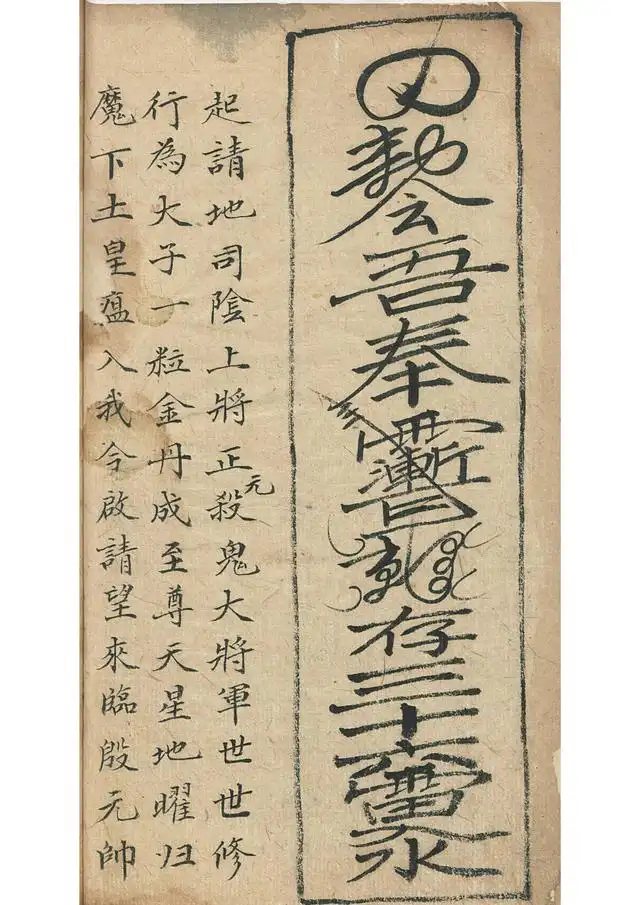 勅令吾奉存三十六雷
起請地司陰上將正元殺鬼大將軍世世修
行為大子一粒金丹成至尊天星地曜归
魔下土皇瘟入我今啟請望來臨殷元帥